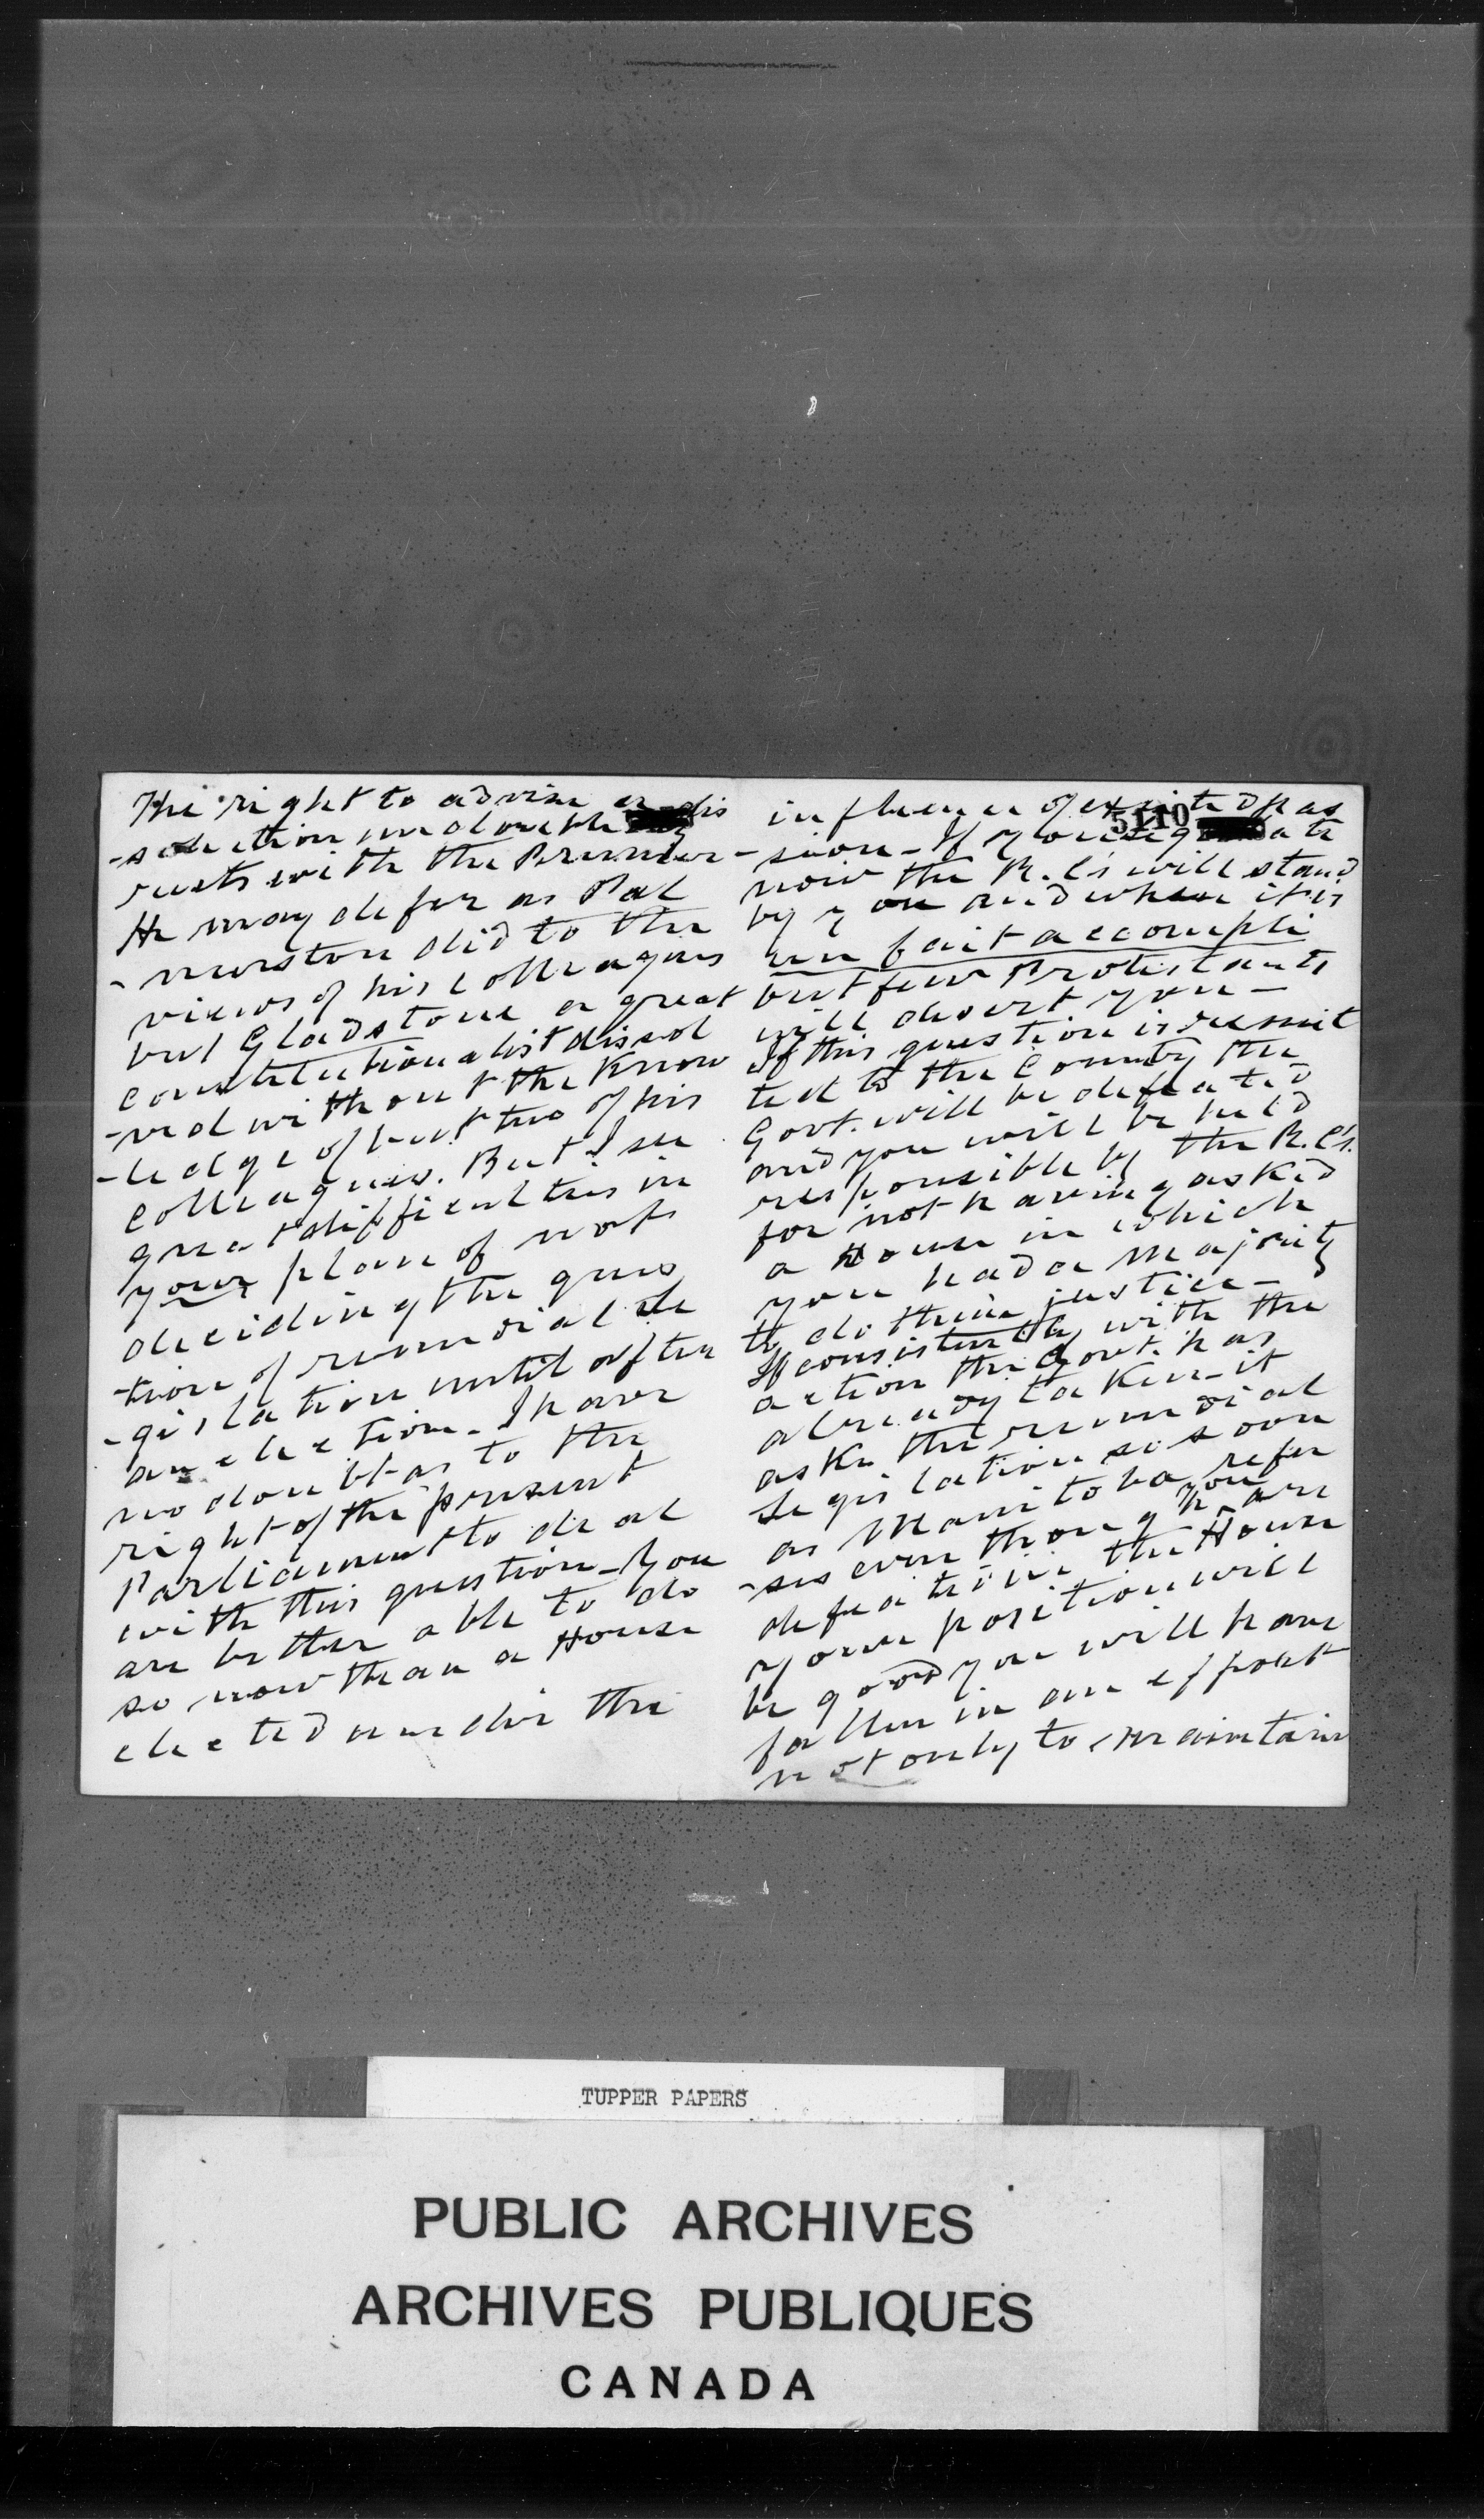 The right to advise a dis
-solution undoubtedly
rests with the Premier-
He may defer as Pal
-merston did to the
views of his colleagues
but Gladstone a great
constitutionalist dissol
-ved without the know
-ledge of but two of his
colleagues. But I see
great difficulties in
your plan of not
deciding the ques
-tion of remedial le
-gislation until after
an election. I have
no doubt as to the
right of the present
Parliament to deal
with this question - You
are better able to do
so now than a House
elected under the
5110
influence of excited pas
sion - If you legislate
now the R. C's will stand
by you and when it is
un fait accompli
but few Protestants
will desert you -
If this question is remit
ted to the Country the
Govt. will be defeated
and you will be held
responsible by the R. C's.
for not having asked
a House in which
you had a majority
to do them justice -
If consistently with the
action the Govt. has
already taken - it
asks the remedial
legislation so soon
as Manitoba refu
-ses even though you are
defeated in the House
your position will
be good you will have
fallen in an effort
not only to maintain
TUPPER PAPERS
PUBLIC ARCHIVES
ARCHIVES PUBLIQUES
CANADA